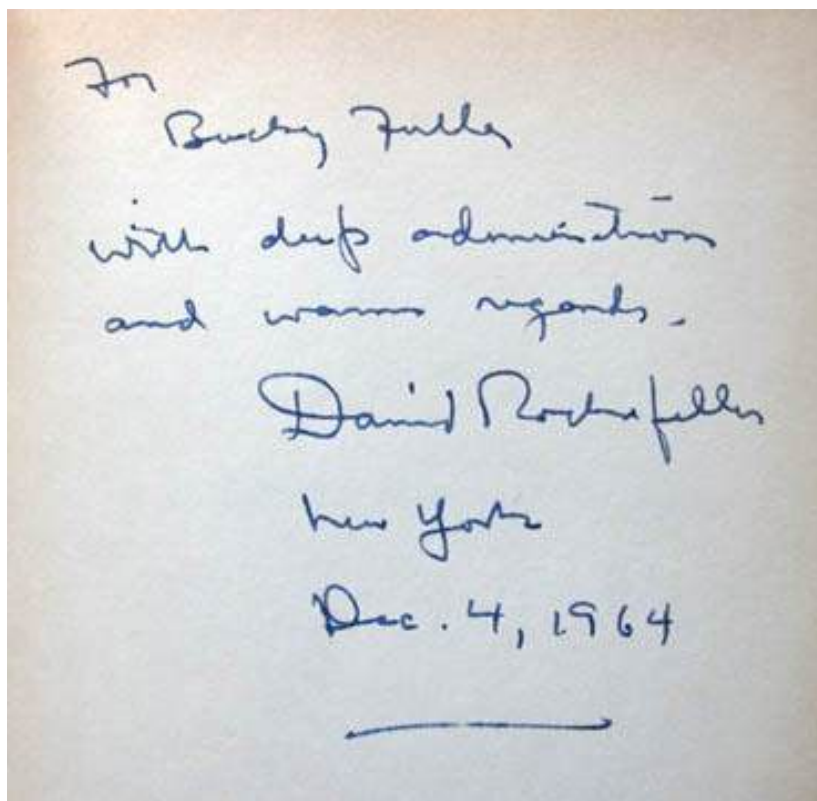 For
Bucky Fuller
with deep admiration
and warm regards.
David Rockefeller
New York
Dec. 4, 1964